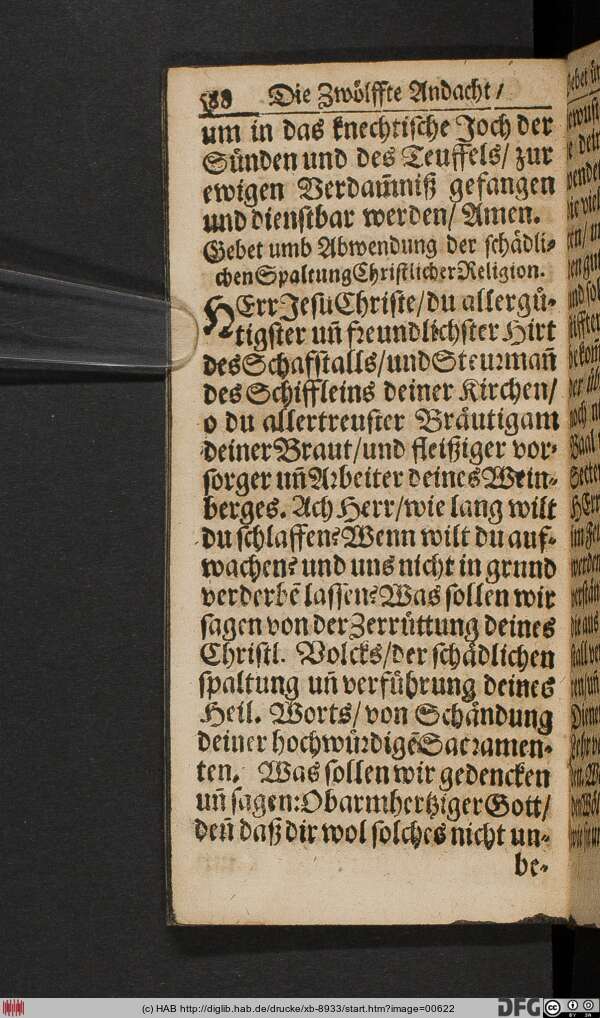 588 Die Zwölffte Andacht /
um in das knechtische Joch der
Sünden und des Teuffels / zur
ewigen Verdam̃niß gefangen
und dienstbar werden / Amen.
Gebet umb Abwendung der schädli⸗
chen Spaltung Christlicher Religion.
HErr Jesu Christe / du allergü⸗
tigster uñ freundlichster Hirt
des Schafstalls / und Steurmañ
des Schiffleins deiner Kirchen /
o du allertreuster Bräutigam
deiner Braut / und fleißiger vor⸗
sorger uñ Arbeiter deines Wein⸗
berges. Ach Herr / wie lang wilt
du schlaffen? Wenn wilt du auf⸗
wachen? und uns nicht in grund
verderbẽ lassen? Was sollen wir
sagen von der Zerrüttung deines
Christl. Volcks / der schädlichen
spaltung uñ verführung deines
Heil. Worts / von Schändung
deiner hochwürdigẽ Sacramen⸗
ten. Was sollen wir gedencken
uñ sagen: O barmhertziger Gott /
deñ daß dir wol solches nicht un⸗
be⸗
(c) HAB http://diglib.hab.de/drucke/xb-8933/start.htm?image=00622
DFG
cc
BY SA